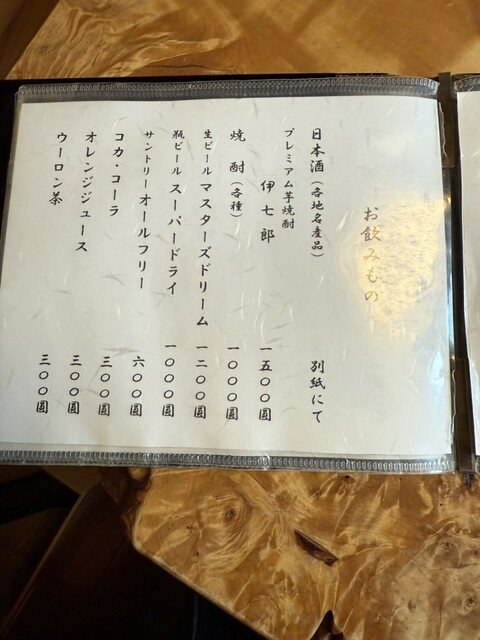 お飲みもの
日本酒(各地名産品) 別紙にて
プレミアム芋焼酎
伊七郎 一五〇〇圓
焼酎(各種) 一〇〇〇圓
生ビール マスターズドリーム 一二〇〇圓
瓶ビール スーパードライ 一〇〇〇圓
サントリー オールフリー 六〇〇圓
コカ・コーラ 三〇〇圓
オレンジジュース 三〇〇圓
ウーロン茶 三〇〇圓